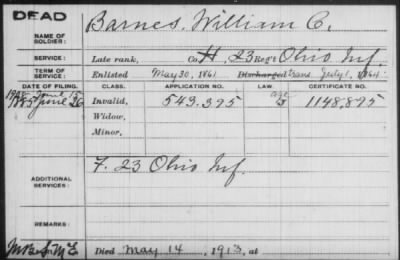 DEAD
NAME OF SOLDIER: Barnes, William C.
SERVICE: Late rank, Co. H, 23 Reg't Ohio Inf.
TERM OF SERVICE: Enlisted May 30, 1861 Discharged trans July 1, 1864
DATE OF FILING. CLASS. APPLICATION NO. LAW. CERTIFICATE NO.
1885 June 26 Invalid, 543.395 1148,895
Widow,
Minor,
ADDITIONAL SERVICES: F. 23 Ohio Inf.
REMARKS:
Died May 14, 1913, at